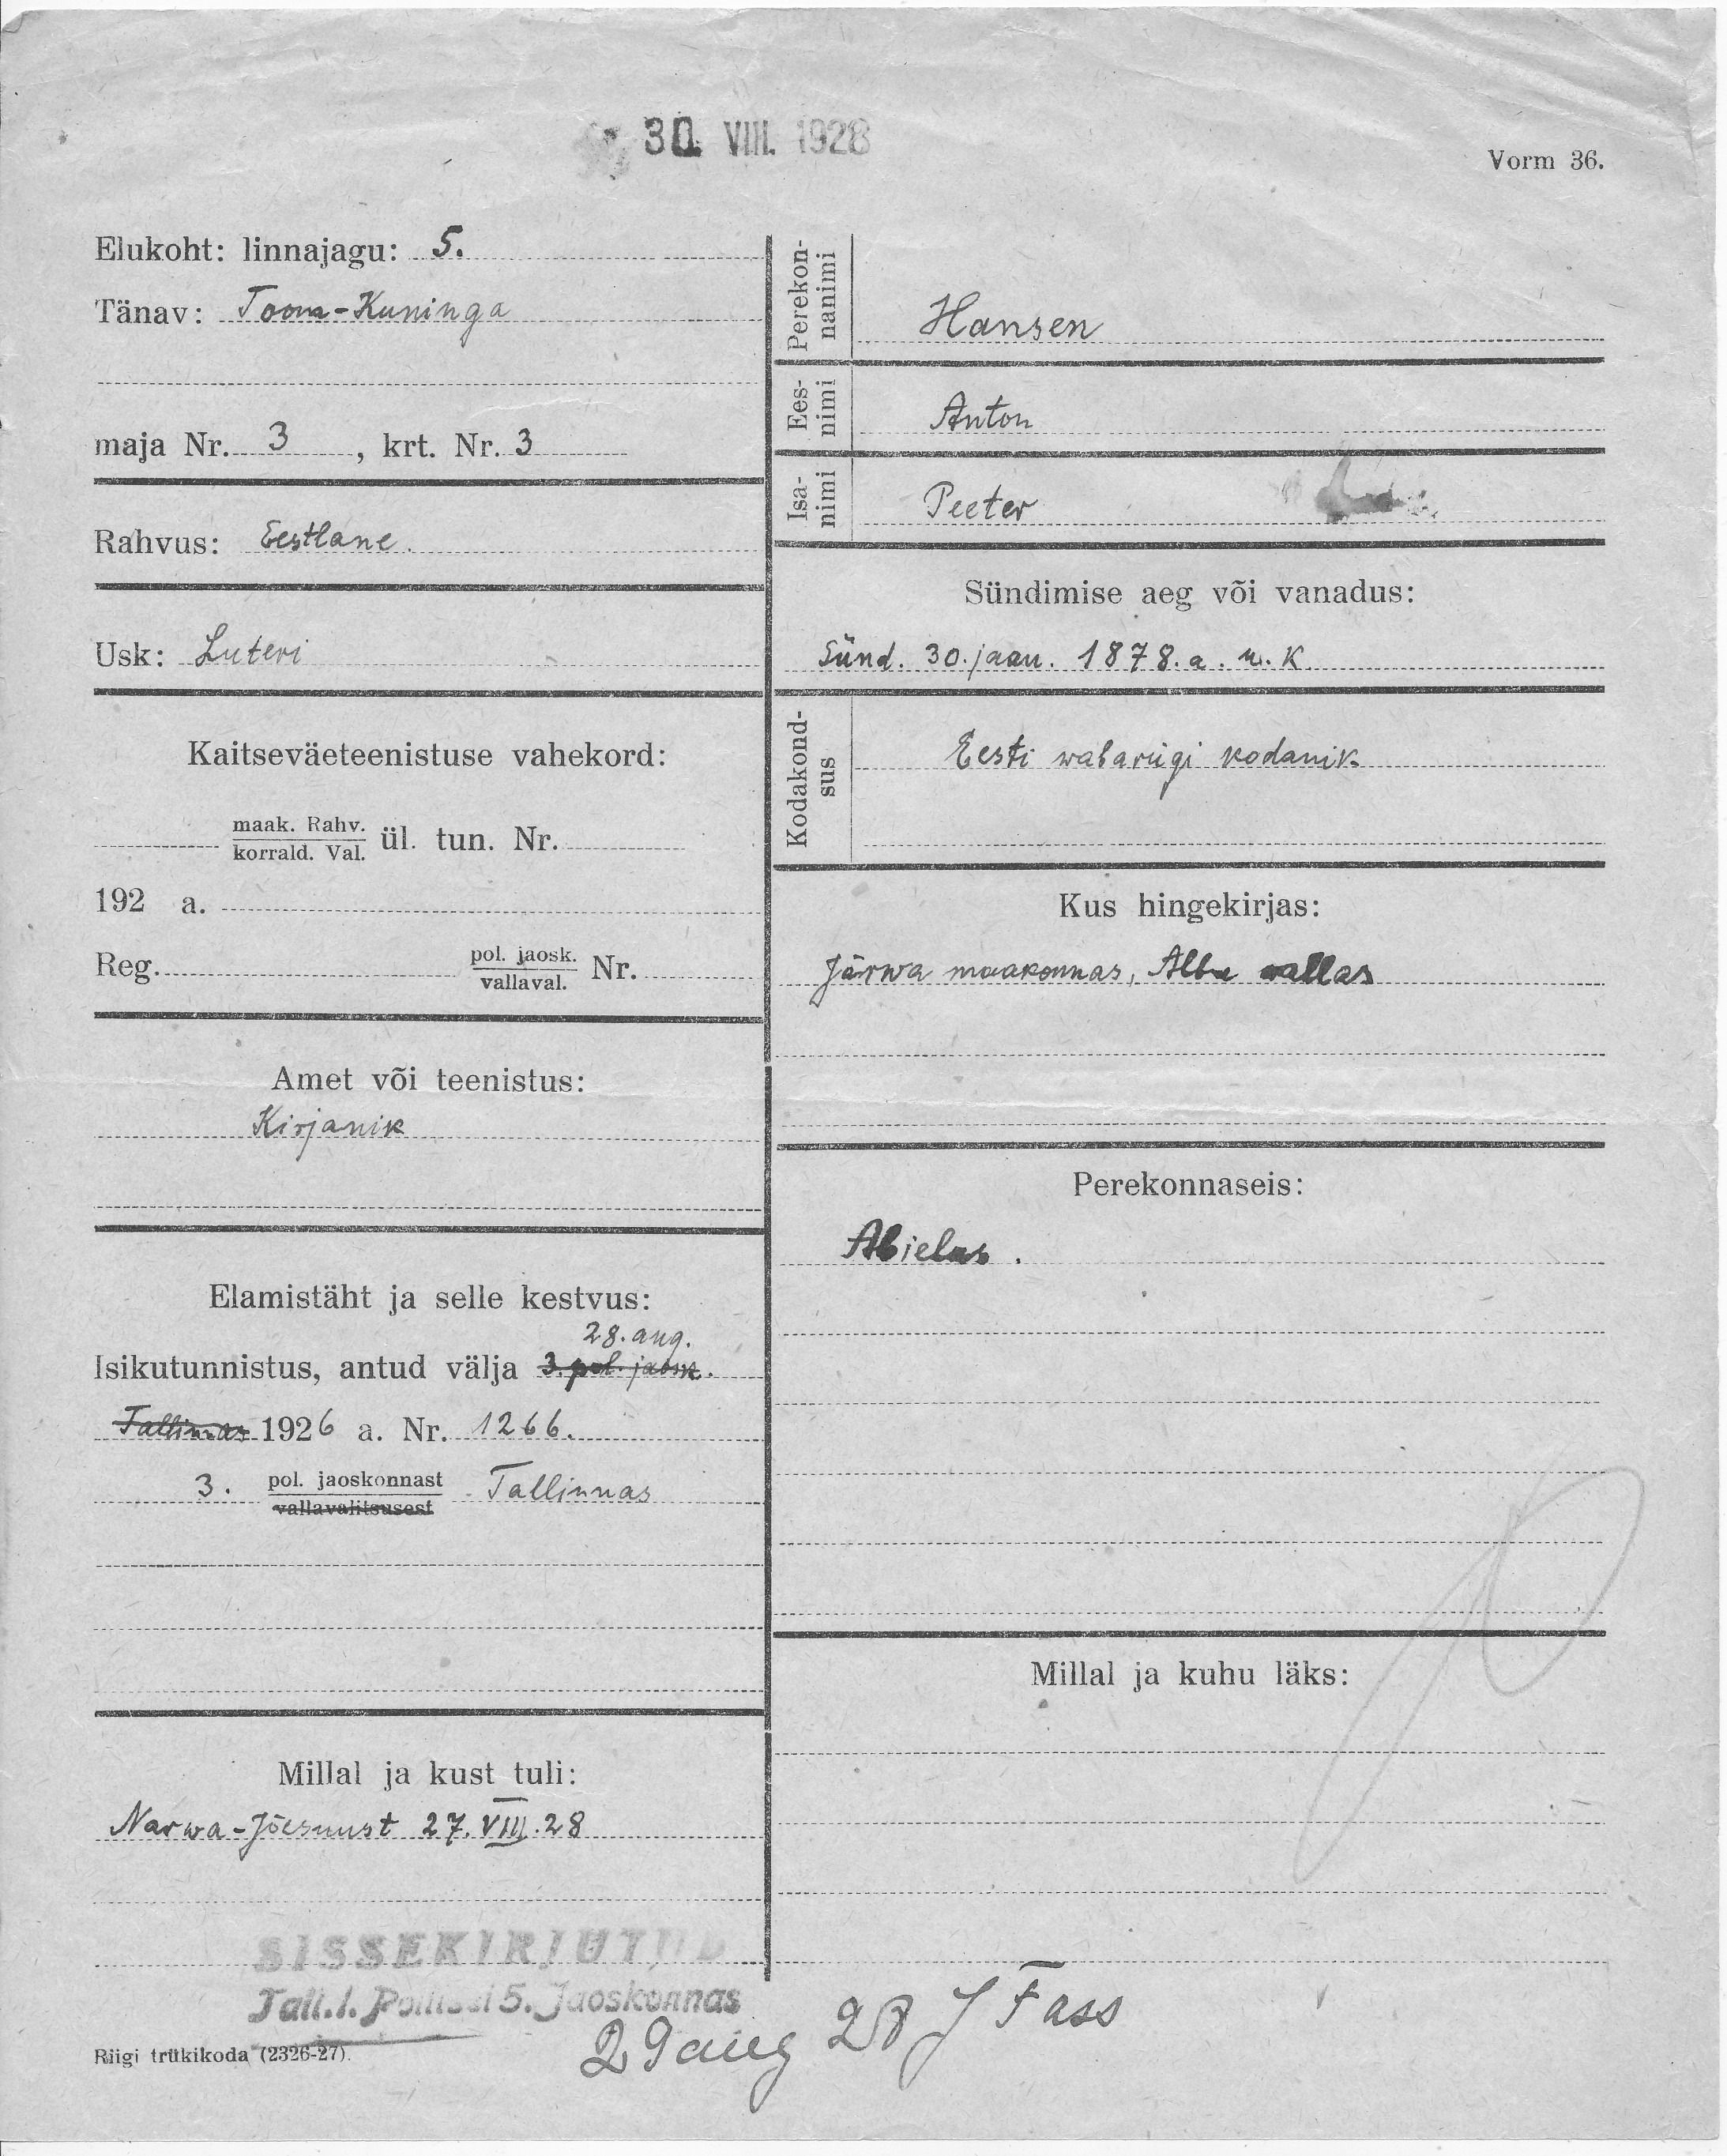 30. VIII. 1928
Vorm 36.
Elukoht: linnajagu: 5.
Tänav: Toom-Kuninga
maja Nr. 3, krt. Nr. 3
Rahvus: Eestlane.
Usk: Luteri
Kaitseväeteenistuse vahekord:
maak. Rahv.
korrald. Val. ül. tun. Nr.
192 a.
Reg. pol. jaosk.
vallaval. Nr.
Amet või teenistus:
Kirjanik
Elamistäht ja selle kestvus:
28. aug.
Isikutunnistus, antud välja 3. pol. jaosk.
Tallinnas 1926 a. Nr. 1266.
3. pol. jaoskonnast Tallinnas
vallavalitsusest
Millal ja kust tuli:
Narwa-Jõesuust 27. VIII. 28
Perekon-
nanimi
Hansen
Ees-
nimi
Anton
Isa-
nimi
Peeter
Sündimise aeg või vanadus:
Sünd. 30. jaan. 1878. a. u. K.
Kodakond-
sus
Eesti wabariigi kodanik
Kus hingekirjas:
Järwa maakonnas, Albu vallas
Perekonnaseis:
Abielus.
Millal ja kuhu läks:
SISSEKIRJUTUD
Tall. l. Politsei 5. Jaoskonnas
29 aug 28 J Fass
Riigi trükikoda (2326-27).